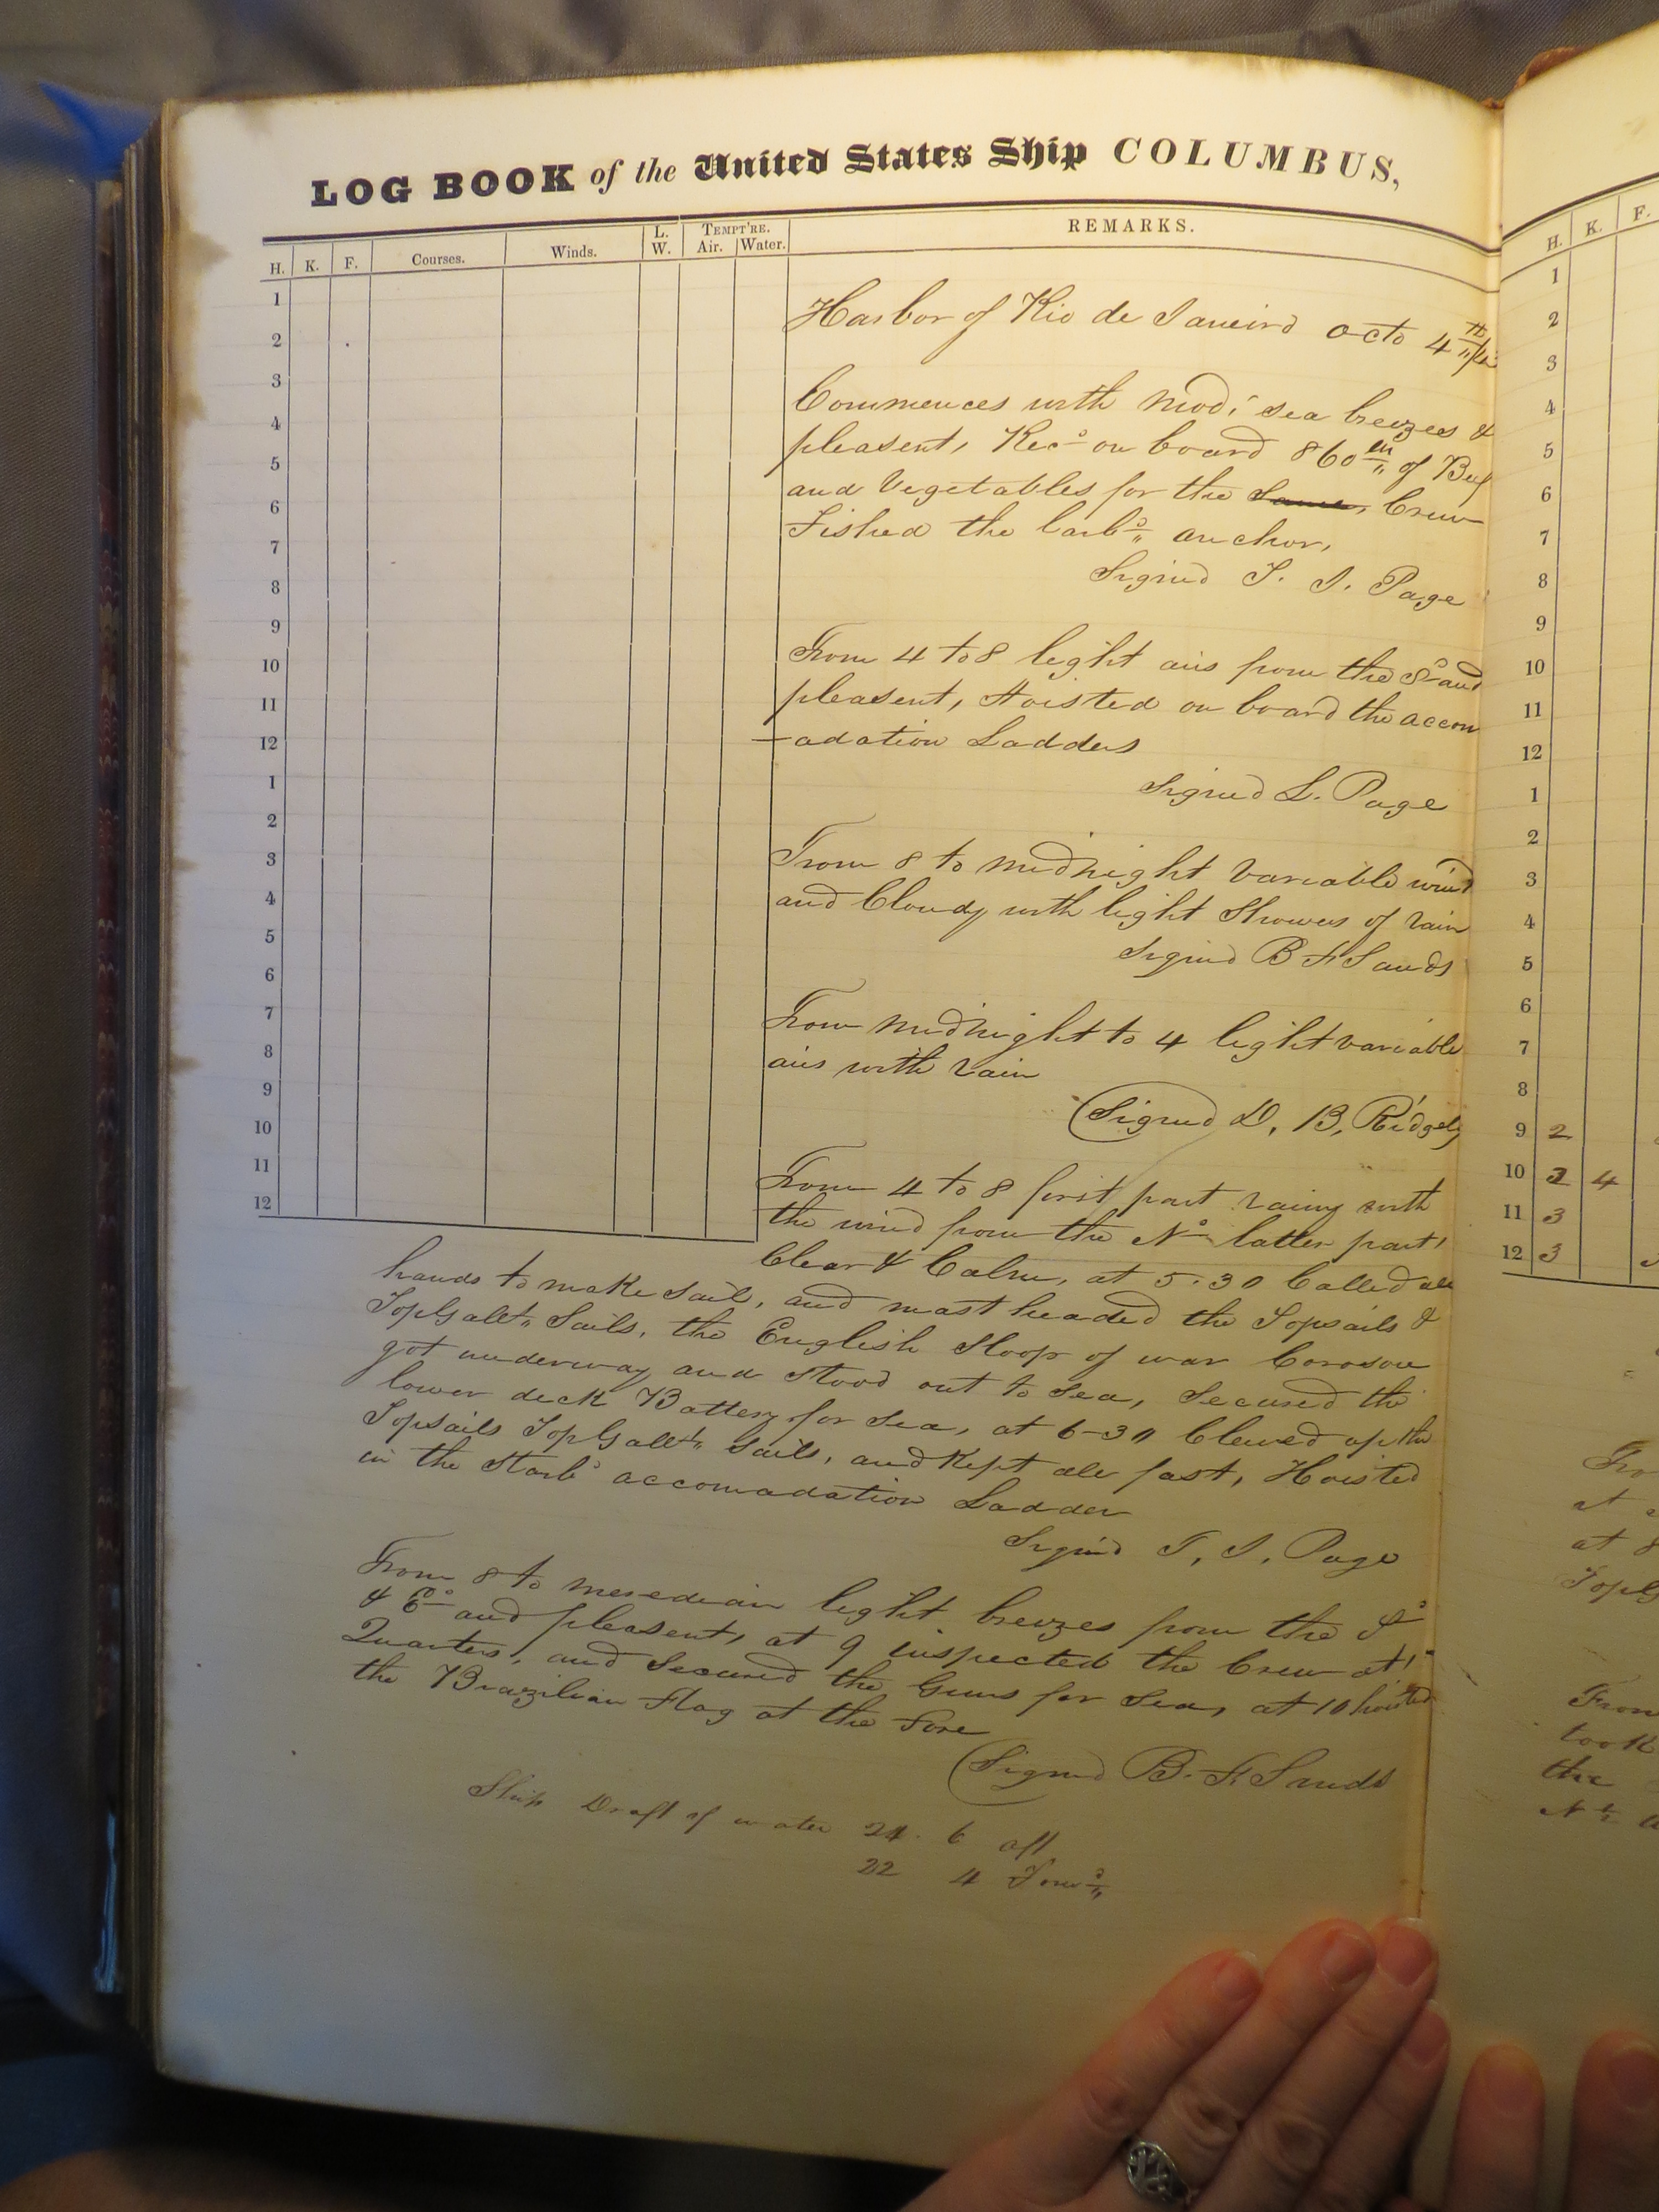 LOG BOOK of the United States Ship COLUMBUS,
H. K. F. Courses. Winds. L. W. TEMPT'RE. Air. Water. REMARKS.
1
2
3
4
5
6
7
8
9
10
11
12
1
2
3
4
5
6
7
8
9
10
11
12
Harbor of Rio de Janeiro Octo 4th
Commences with Mod. sea breezes &
pleasent, Recd on board 860 lbs of Beef
and Vegetables for the Same, Crew
Fished the Larbd anchor,
Signed T. J. Page
From 4 to 8 light airs from the Sd and
pleasent, Hoisted on board the accom
-adation Ladders
Signed L. Page
From 8 to midnight Variable wind
and Cloudy with light Showers of rain
Signed B F Sands
From midnight to 4 light variable
airs with rain
(Signed D. B. Ridgely
From 4 to 8 first part rainy with
the wind from the Nd latter part,
Clear & Calm, at 5.30 Called all
hands to make Sail, and mast headed the Topsails &
TopGallt Sails, the English Sloop of war
got underway and Stood out to Sea, Secured the
lower deck Battery for Sea, at 6-30 Clewed up the
Topsails TopGallt Sails, and Kept all fast, Hoisted
in the Starbd accomadation Ladder
Signed T. J. Page
From 8 to meredian light breezes from the Sd
& Ed and pleasent, at 9 inspected the Crew at
Quarters, and Secured the Guns for Sea, at 10 hoisted
the Brazilian Flag at the Fore
(Signed B. F. Sands
Ship Draft of water 24. 6 aft
22 4 Forwd
H. K. F.
1
2
3
4
5
6
7
8
9
10
11
12
1
2
3
4
5
6
7
8
9 2
10 3 4
11 3
12 3
at 8
From
took
the